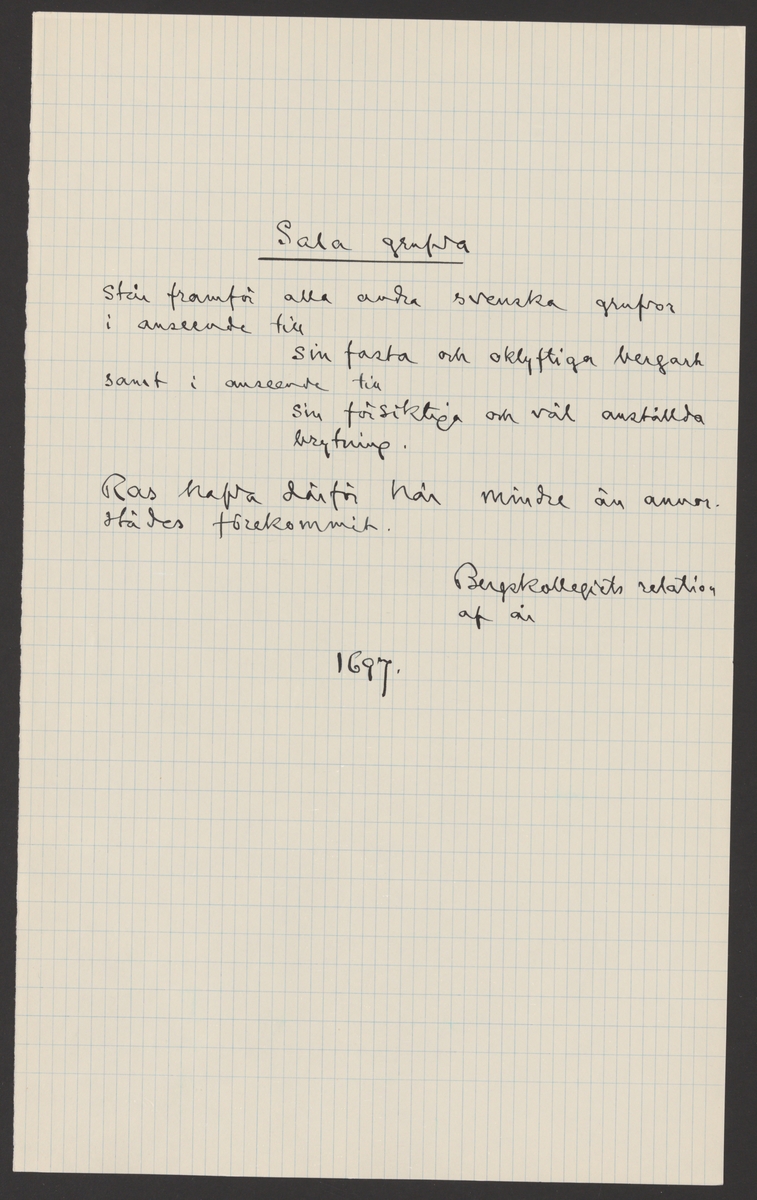 Sala grufva
Står framför alla andra svenska grufvor
i anseende till
sin fasta och oklyftiga bergart
samt i anseende till
sin försiktiga och väl anställda
brytning.
Ras hafva därför här mindre än annor-
städes förekommit.
Bergskollegiets relation
af år
1697.